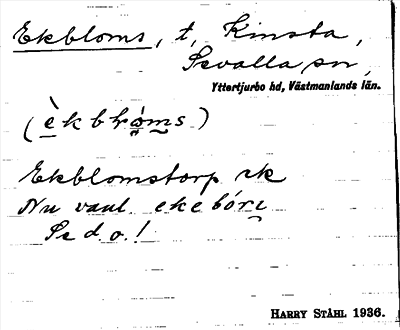 Ekbloms, t, Kinsta,
Sevalla sn,
Yttertjurbo hd, Västmanlands län.
(èkbɫóms)
Ekblomstorp ek
Nu vanl. ekebóri
Se d. o.!
HARRY STÅHL 1936.